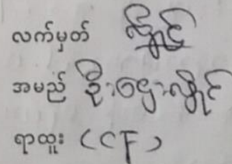 လက်မှတ်
အမည် ဦးဌေးလှိုင်
ရာထူး (CCF)